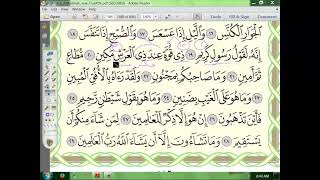 الْجَوَارِ الْكُنَّسِ ١٦ وَاللَّيْلِ إِذَا عَسْعَسَ ١٧ وَالصُّبْحِ إِذَا تَنَفَّسَ ١٨
إِنَّهُ لَقَوْلُ رَسُولٍ كَرِيمٍ ١٩ ذِي قُوَّةٍ عِندَ ذِي الْعَرْشِ مَكِينٍ ٢٠ مُّطَاعٍ
ثَمَّ أَمِينٍ ٢١ وَمَا صَاحِبُكُم بِمَجْنُونٍ ٢٢ وَلَقَدْ رَآهُ بِالْأُفُقِ الْمُبِينِ
٢٣ وَمَا هُوَ عَلَى الْغَيْبِ بِضَنِينٍ ٢٤ وَمَا هُوَ بِقَوْلِ شَيْطَانٍ رَّجِيمٍ ٢٥
فَأَيْنَ تَذْهَبُونَ ٢٦ إِنْ هُوَ إِلَّا ذِكْرٌ لِّلْعَالَمِينَ ٢٧ لِمَن شَاءَ مِنكُمْ أَن
يَسْتَقِيمَ ٢٨ وَمَا تَشَاءُونَ إِلَّا أَن يَشَاءَ اللَّهُ رَبُّ الْعَالَمِينَ ٢٩